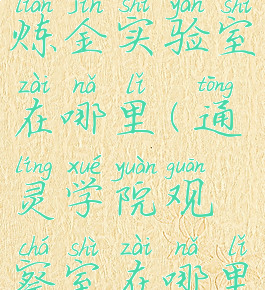 liàn jīn shí yàn shì
炼金实验室
zài nǎ lǐ tōng
在哪里(通
líng xué yuàn guān
灵学院观
chá shì zài nǎ lǐ
察室在哪里